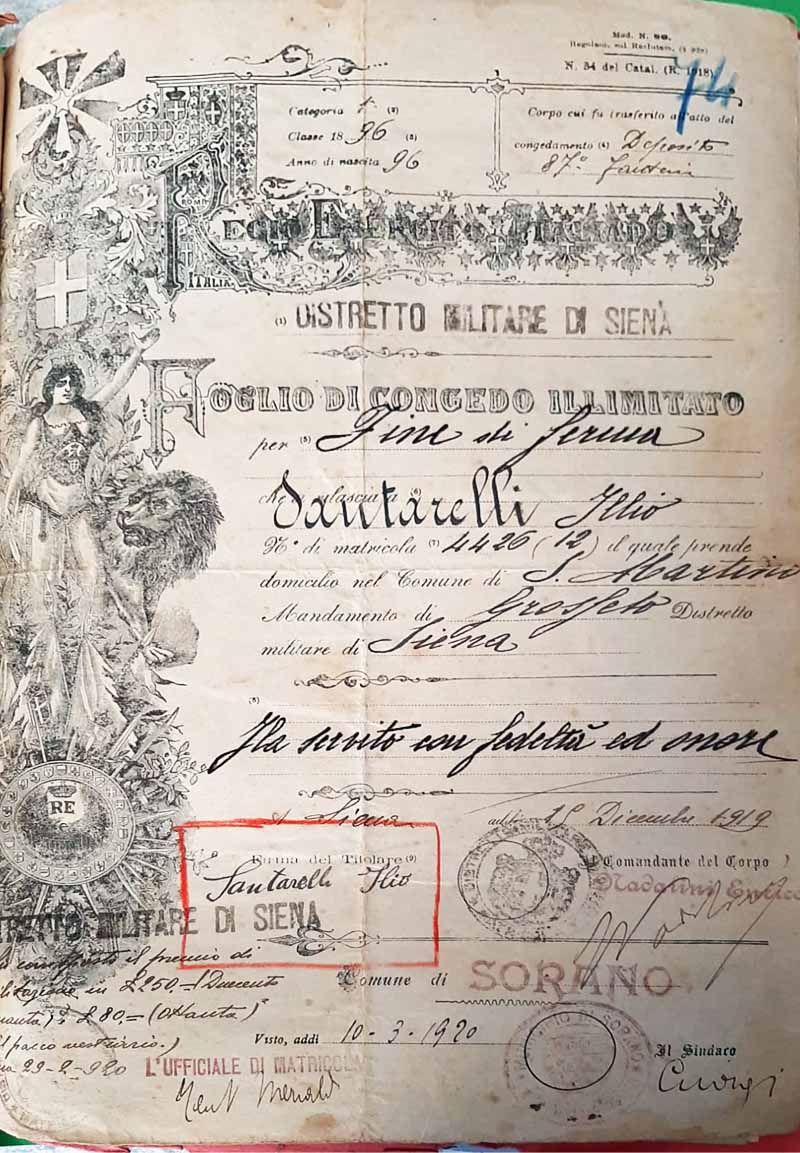 Mod. N. 99.
Regolam. sul Reclutam. (§ 929)
N. 54 del Catal. (R. 1918)
74
Categoria 1ª (2)
Classe 18 96 (3)
Anno di nascita 96
Corpo cui fu trasferito all'atto del
congedamento (4) Deposito
87º Fanteria
ROMA
ITALIA
REGIO ESERCITO ITALIANO
(1) DISTRETTO MILITARE DI SIENA
FOGLIO DI CONGEDO ILLIMITATO
per (5) Fine di ferma
che si rilascia a
Santarelli Ilio
N.º di matricola (7) 4426 (12) il quale prende
domicilio nel Comune di S. Martino
Mandamento di Grosseto Distretto
militare di Siena
(8)
Ha servito con fedeltà ed onore
A Siena addì 25 Dicembre 1919
RE
Firma del Titolare (9)
Santarelli Ilio
Il Comandante del Corpo
DISTRETTO MILITARE DI SIENA
il premio di
in £ 250.=
£ 80.= (Ottanta)
pacco vestiario.)
29-2-920
L'UFFICIALE DI MATRICOLA
Comune di SORANO
Visto, addì 10-3-1920
Il Sindaco